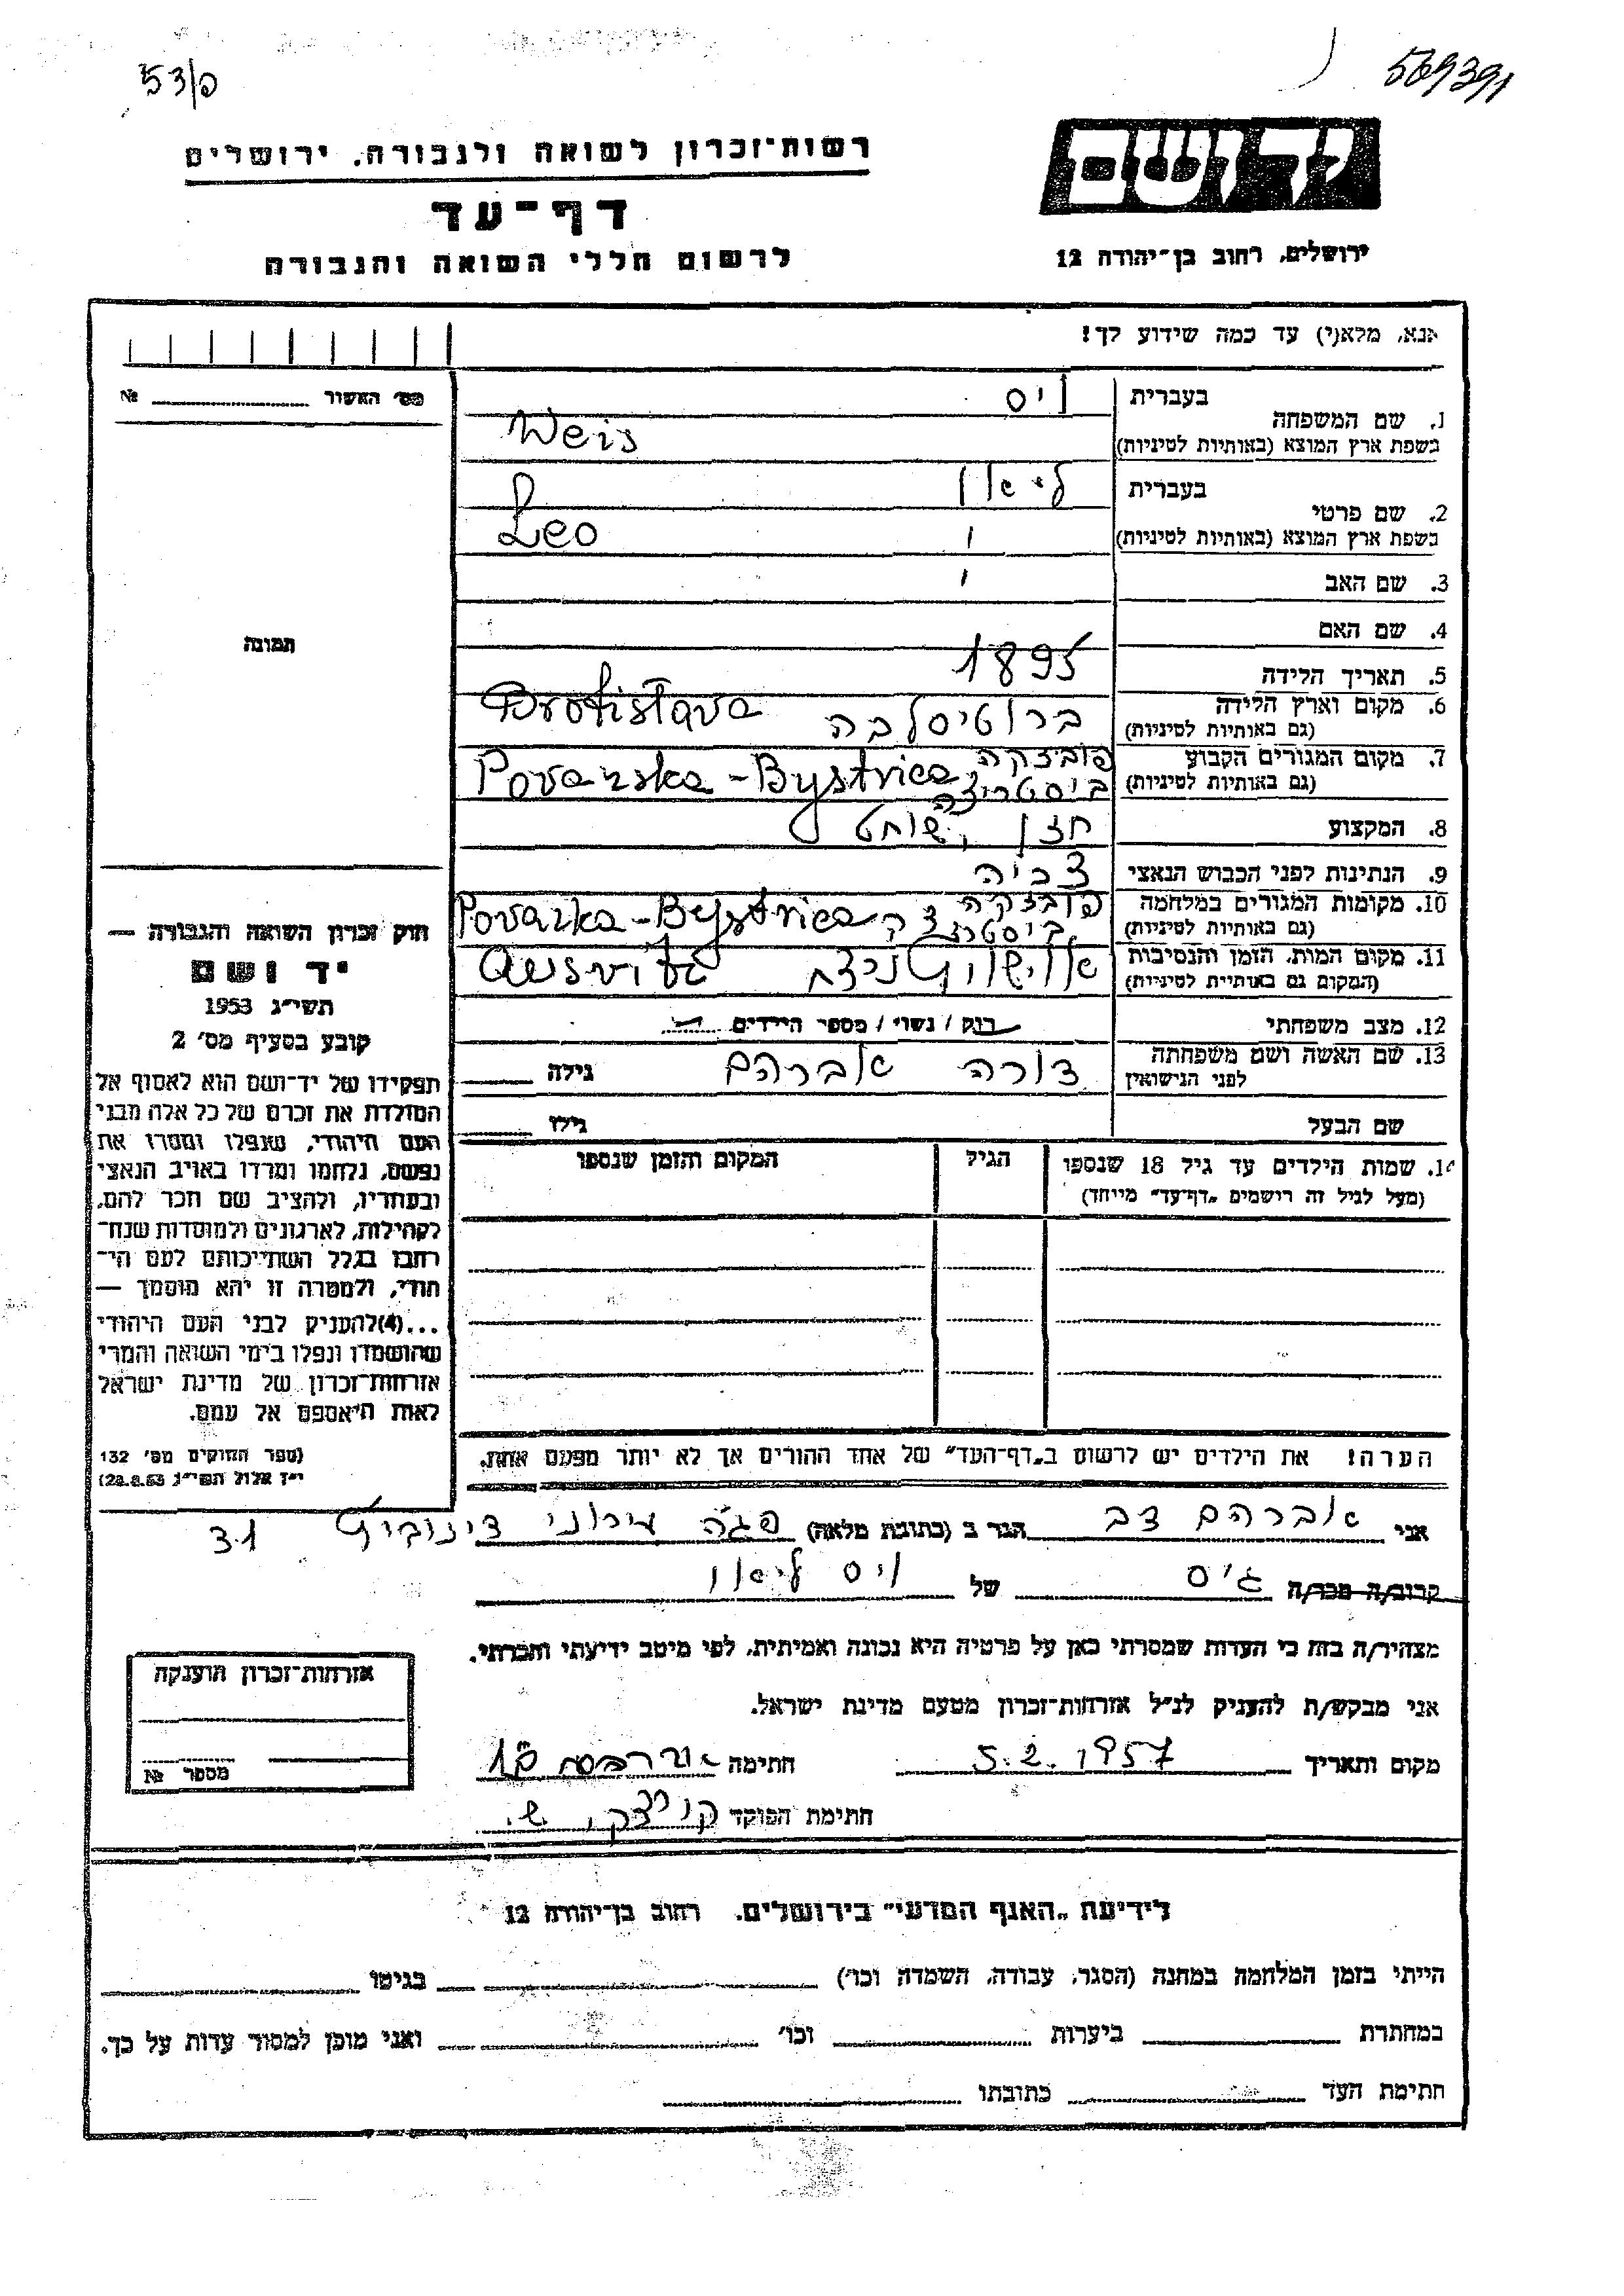 53/פ
569391
רשות־זכרון לשואה ולגבורה, ירושלים
דף־עד
לרשום חללי השואה והגבורה
יד ושם
ירושלים, רחוב בן־יהודה 12
אנא, מלא(י) עד כמה שידוע לך!
מס׳ האשור № 
1. שם המשפחה
בעברית ויס
בשפת ארץ המוצא (באותיות לטיניות) Weis
2. שם פרטי
בעברית ליאו
בשפת ארץ המוצא (באותיות לטיניות) Leo
3. שם האב
4. שם האם
5. תאריך הלידה 1895
6. מקום וארץ הלידה
(גם באותיות לטיניות) ברטיסלבה Bratislava
7. מקום המגורים הקבוע
(גם באותיות לטיניות) פובזקה ביסטריצה Povazska - Bystrica
8. המקצוע חזן ושוחט
9. הנתינות לפני הכבוש הנאצי צכיה
10. מקומות המגורים במלחמה
(גם באותיות לטיניות) פובזקה ביסטריצה Povazka - Bystrica
11. מקום המות, הזמן והנסיבות
(המקום גם באותיות לטיניות) אוישויטניצה Ausvitz
12. מצב משפחתי רוק / נשוי / מספר הילדים
13. שם האשה ושם משפחתה
לפני הנישואין דורה אברהם גילה
שם הבעל גילו
14. שמות הילדים עד גיל 18 שנספו
(מעל לגיל זה רושמים „דף־עד״ מיוחד)
הגיל
המקום והזמן שנספו
הערה! את הילדים יש לרשום ב„דף־העד״ של אחד ההורים אך לא יותר מפעם אחת.
תמונה
חוק זכרון השואה והגבורה —
יד ושם
תשי״ג 1953
קובע בסעיף מס׳ 2
תפקידו של יד־ושם הוא לאסוף אל
המולדת את זכרם של כל אלה מבני
העם היהודי, שנפלו ומסרו את
נפשם, נלחמו ומרדו באויב הנאצי
ובעוזריו, ולהציב שם וזכר להם,
לקהילות, לארגונים ולמוסדות שנח־
רבו בגלל השתייכותם לעם הי־
הודי, ולמטרה זו יהא מוסמך —
...(4) להעניק לבני העם היהודי
שהושמדו ונפלו בימי השואה והמרי
אזרחות־זכרון של מדינת ישראל
לאות היאספם אל עמם.
(ספר החוקים מס׳ 132
י״ז אלול תשי״ג 28.8.53)
אני אברהם צבי הגר ב (כתובת מלאה) פגה עירוני דיזנגוף 31
קרוב/ה מכר/ה גיס של ויס ליאו
מצהיר/ה בזה כי העדות שמסרתי כאן על פרטיה היא נכונה ואמיתית, לפי מיטב ידיעתי והכרתי.
אני מבקש/ת להעניק לנ״ל אזרחות־זכרון מטעם מדינת ישראל.
מקום ותאריך 5.2.1957 חתימה אברהם
חתימת הפוקד
אזרחות־זכרון הוענקה
מספר №
לידיעת „האגף המדעי״ בירושלים, רחוב בן־יהודה 12
הייתי בזמן המלחמה במחנה (הסגר, עבודה, השמדה וכו׳) בגיטו
במחתרת ביערות וכו׳ ואני מוכן למסור עדות על כך.
חתימת העד כתובתו